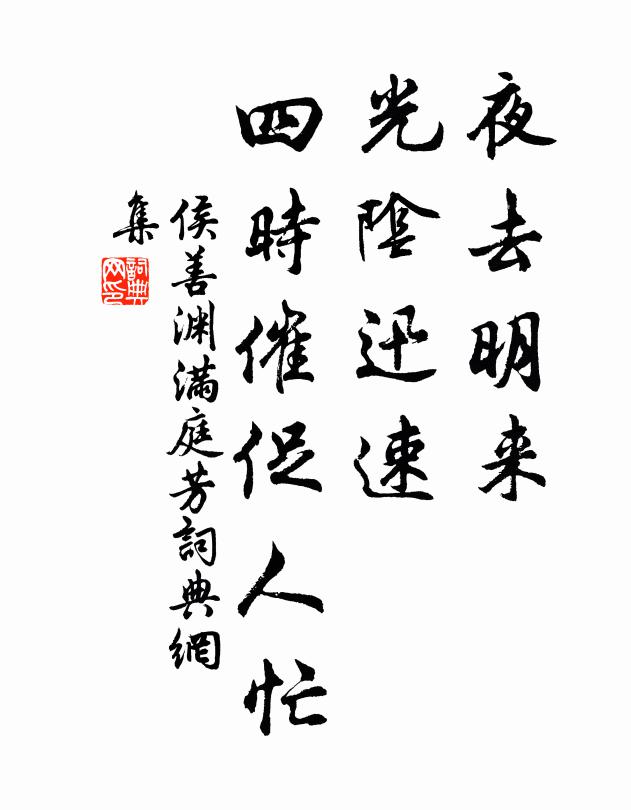 夜去明来
光陰迅速
四時催促人忙
侯善渊满庭芳詞典網
集
詞典
网印